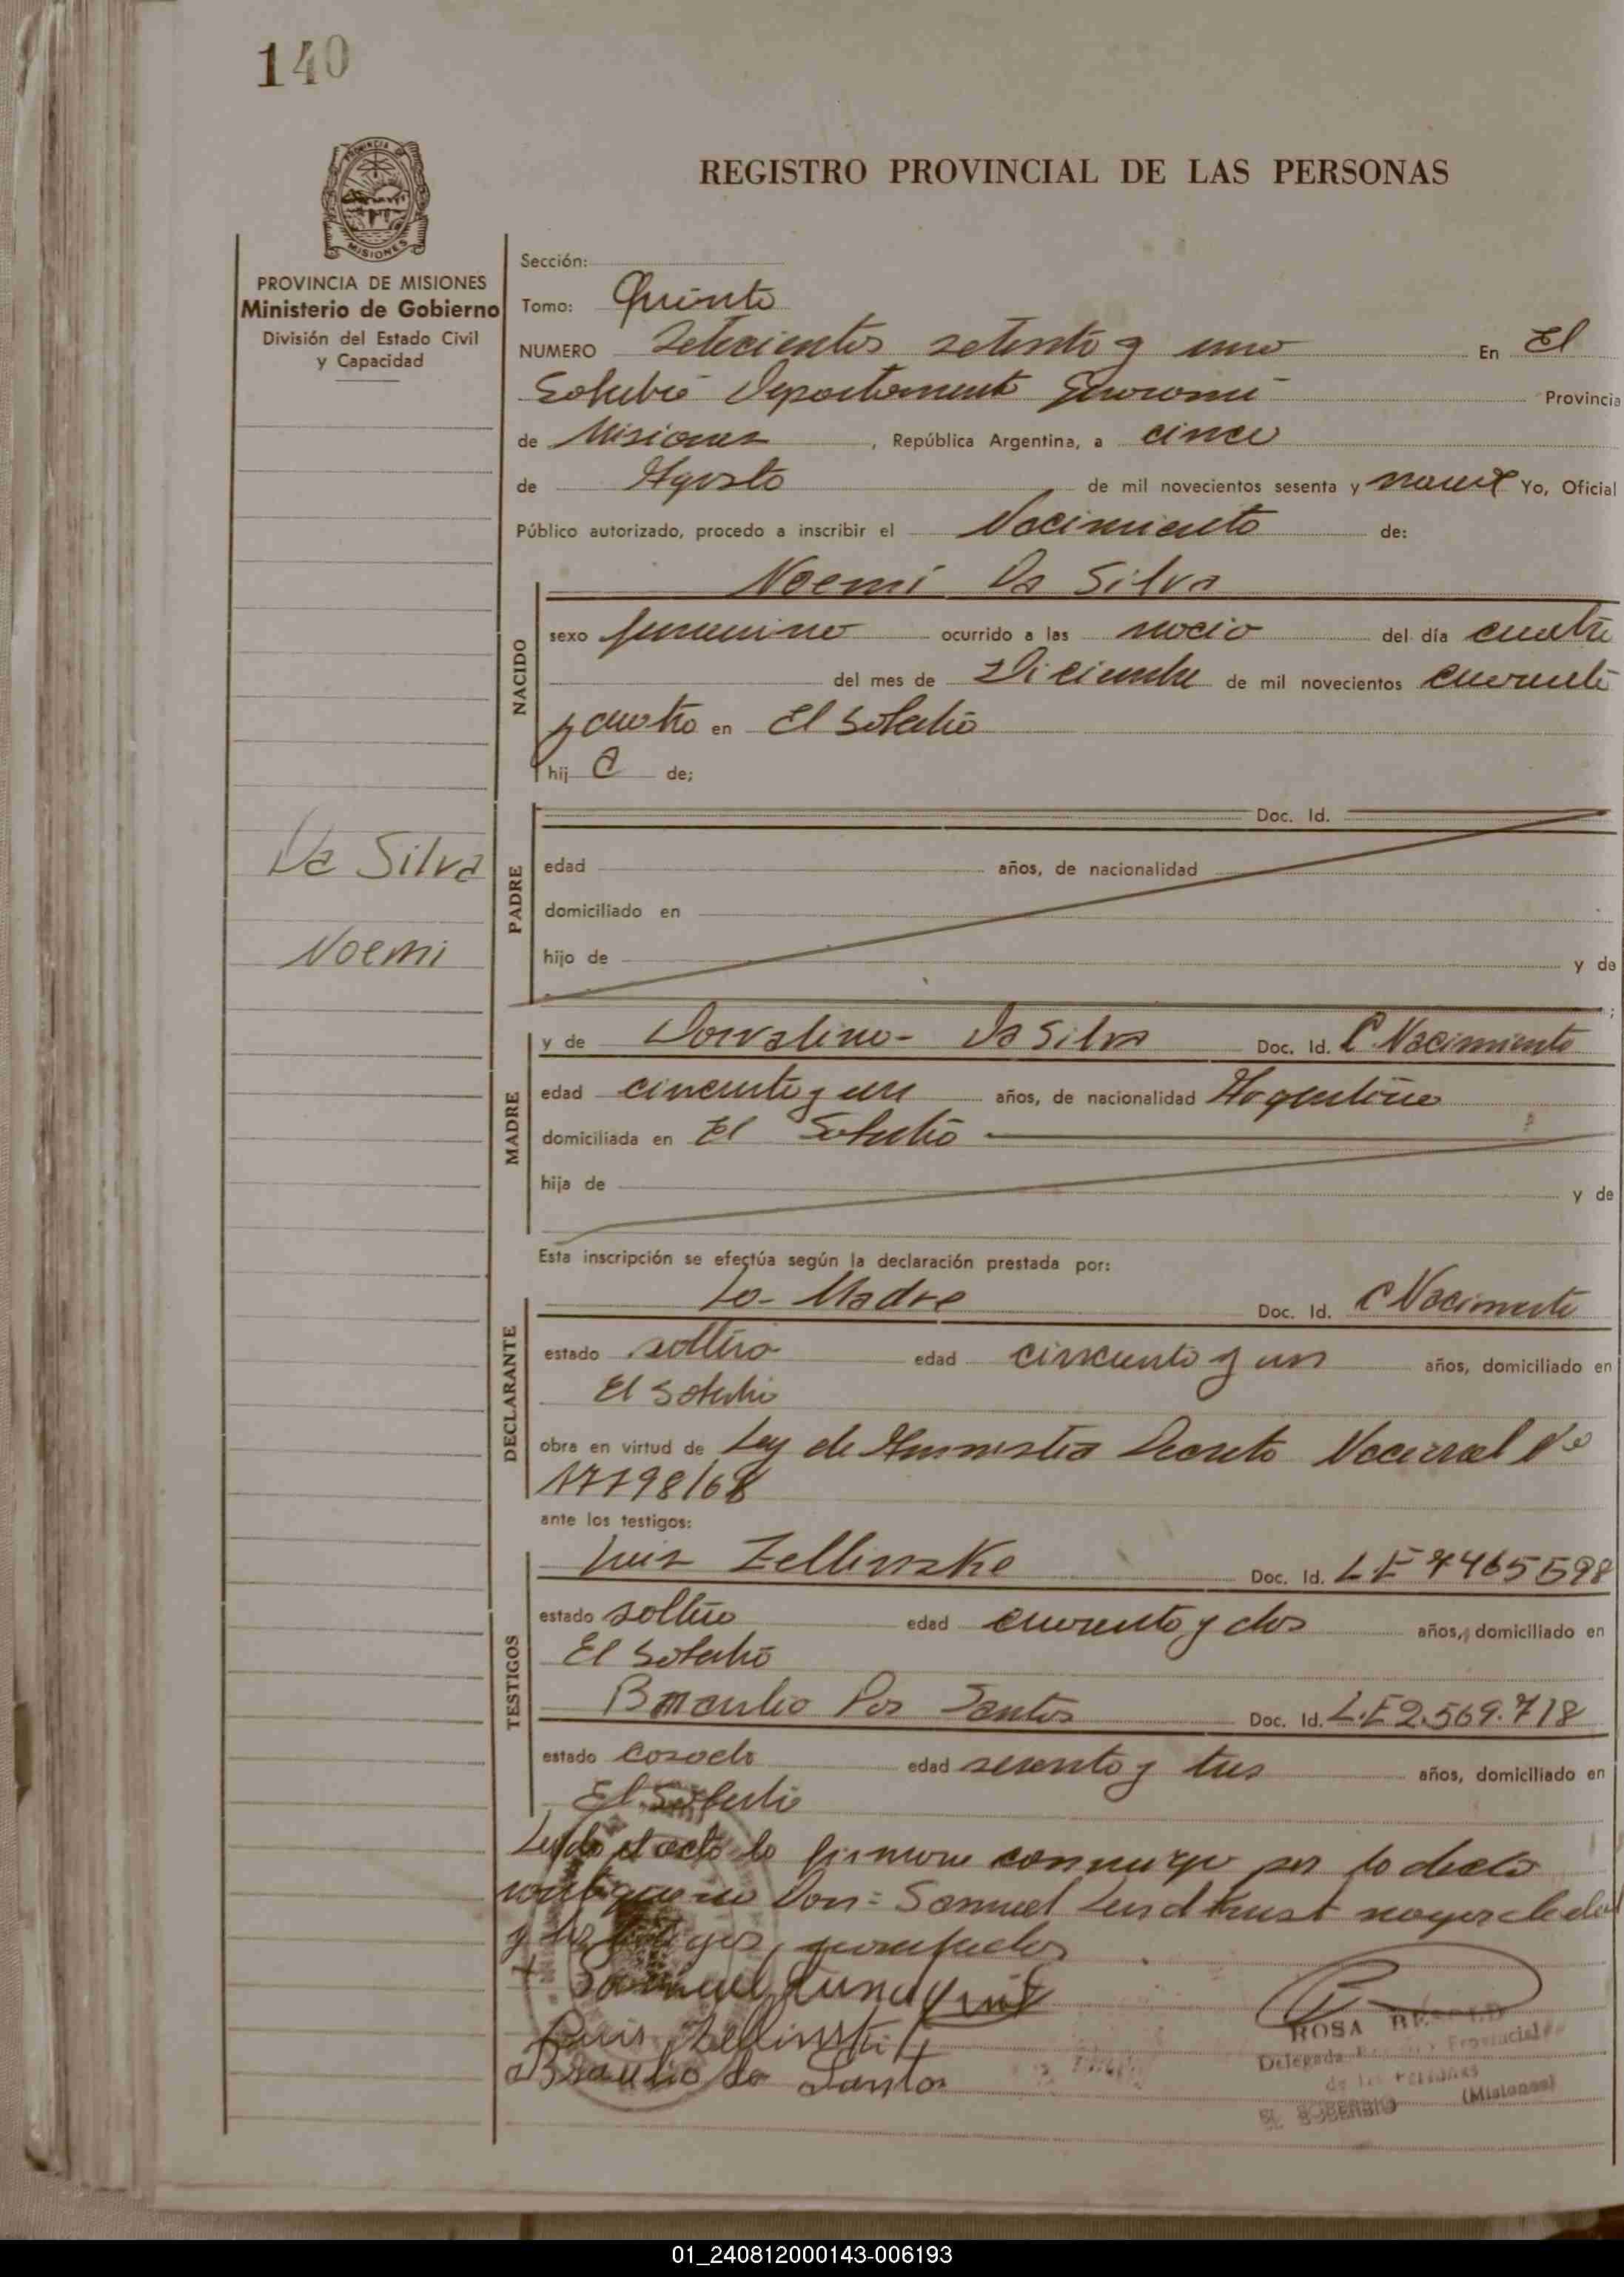 140
REGISTRO PROVINCIAL DE LAS PERSONAS
PROVINCIA DE MISIONES
Ministerio de Gobierno
División del Estado Civil
y Capacidad
Sección:
Tomo: Quinto
NUMERO Setecientos setenta y uno En El
Soberbio Departamento Guaraní Provincia
de Misiones, República Argentina, a cinco
de Agosto de mil novecientos sesenta y nueve Yo, Oficial
Público autorizado, procedo a inscribir el Nacimiento de:
Noemí Da Silva
NACIDO
sexo femenino ocurrido a las del día cuatro
del mes de Diciembre de mil novecientos cuarenta
y cuatro en El Soberbio
hij a de;
Da Silva
Noemi
PADRE
Doc. Id.
edad años, de nacionalidad
domiciliado en
hijo de y de
MADRE
y de Dorvalina Da Silva Doc. Id. C Nacimiento
edad cincuenta y un años, de nacionalidad Argentina
domiciliada en El Soberbio
hija de y de
Esta inscripción se efectúa según la declaración prestada por:
DECLARANTE
La Madre Doc. Id. C Nacimiento
estado soltera edad cincuenta y un años, domiciliado en
El Soberbio
obra en virtud de Ley de Amnistia Decreto Nacional Nº
17798/68
ante los testigos:
TESTIGOS
Luis Zellinske Doc. Id. L E 7465598
estado soltero edad cuarenta y dos años, domiciliado en
El Soberbio
Braulio Dos Santos Doc. Id. L.E 2.569.718
estado casado edad sesenta y tres años, domiciliado en
El Soberbio
Leido el acta la firman conmigo por la
Don: Samuel mayor de edad
y los testigos
Samuel
Luis Zellinski
Braulio do Santos
ROSA
Delegada Provincial
de las Personas
EL SOBERBIO (Misiones)
MISIONES
01_240812000143-006193